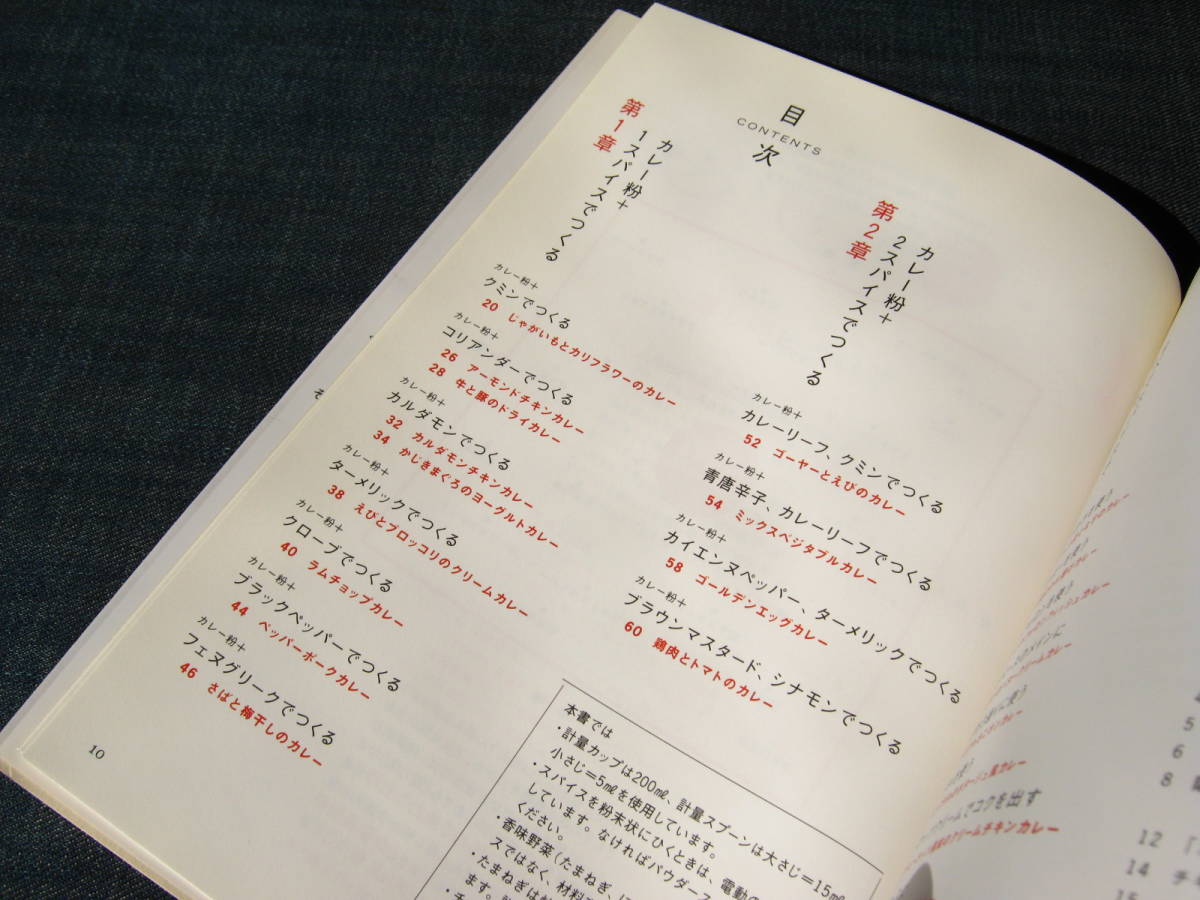 目次
CONTENTS
第1章
カレー粉+
1スパイスでつくる
カレー粉+
クミンでつくる
20 じゃがいもとカリフラワーのカレー
カレー粉+
コリアンダーでつくる
26 アーモンドチキンカレー
28 牛と豚のドライカレー
カレー粉+
カルダモンでつくる
32 カルダモンチキンカレー
34 かじきまぐろのヨーグルトカレー
カレー粉+
ターメリックでつくる
38 えびとブロッコリのクリームカレー
カレー粉+
クローブでつくる
40 ラムチョップカレー
カレー粉+
ブラックペッパーでつくる
44 ペッパーポークカレー
カレー粉+
フェヌグリークでつくる
46 さばと梅干しのカレー
第2章
カレー粉+
2スパイスでつくる
カレー粉+
カレーリーフ、クミンでつくる
52 ゴーヤーとえびのカレー
カレー粉+
青唐辛子、カレーリーフでつくる
54 ミックスベジタブルカレー
カレー粉+
カイエンヌペッパー、ターメリックでつくる
58 ゴールデンエッグカレー
カレー粉+
ブラウンマスタード、シナモンでつくる
60 鶏肉とトマトのカレー
本書では
・計量カップは200㎖、計量スプーンは大さじ=15㎖
小さじ=5㎖を使用しています。
・スパイスを粉末状にひくときは、電動の
しています。なければパウダース
ください。
・香味野菜(たまねぎ、に
スではなく、材料
・たまねぎは
ます。
10
クリームでコクを出す
クリームチキンカレー
5
6
8
12
14 チキ
15